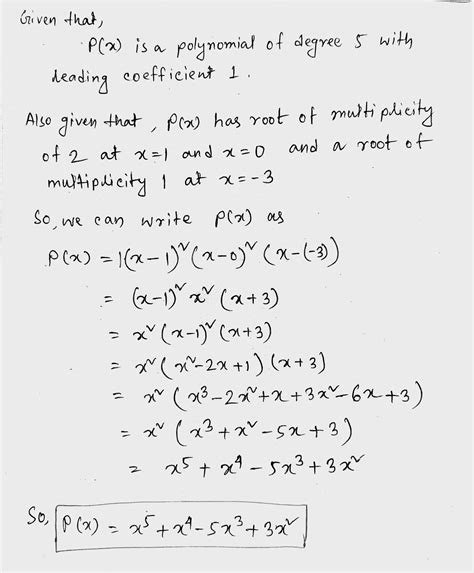 Given that,
P(x) is a polynomial of degree 5 with
leading coefficient 1.
Also given that, P(x) has root of multiplicity
of 2 at x=1 and x=0 and a root of
multiplicity 1 at x=-3
So, we can write P(x) as
P(x) = 1(x-1)²(x-0)²(x-(-3))
= (x-1)² x² (x+3)
= x² (x-1)² (x+3)
= x² (x²-2x+1) (x+3)
= x² (x³-2x²+x+3x²-6x+3)
= x² (x³+x²-5x+3)
= x⁵+x⁴-5x³+3x²
So, P(x) = x⁵+x⁴-5x³+3x²